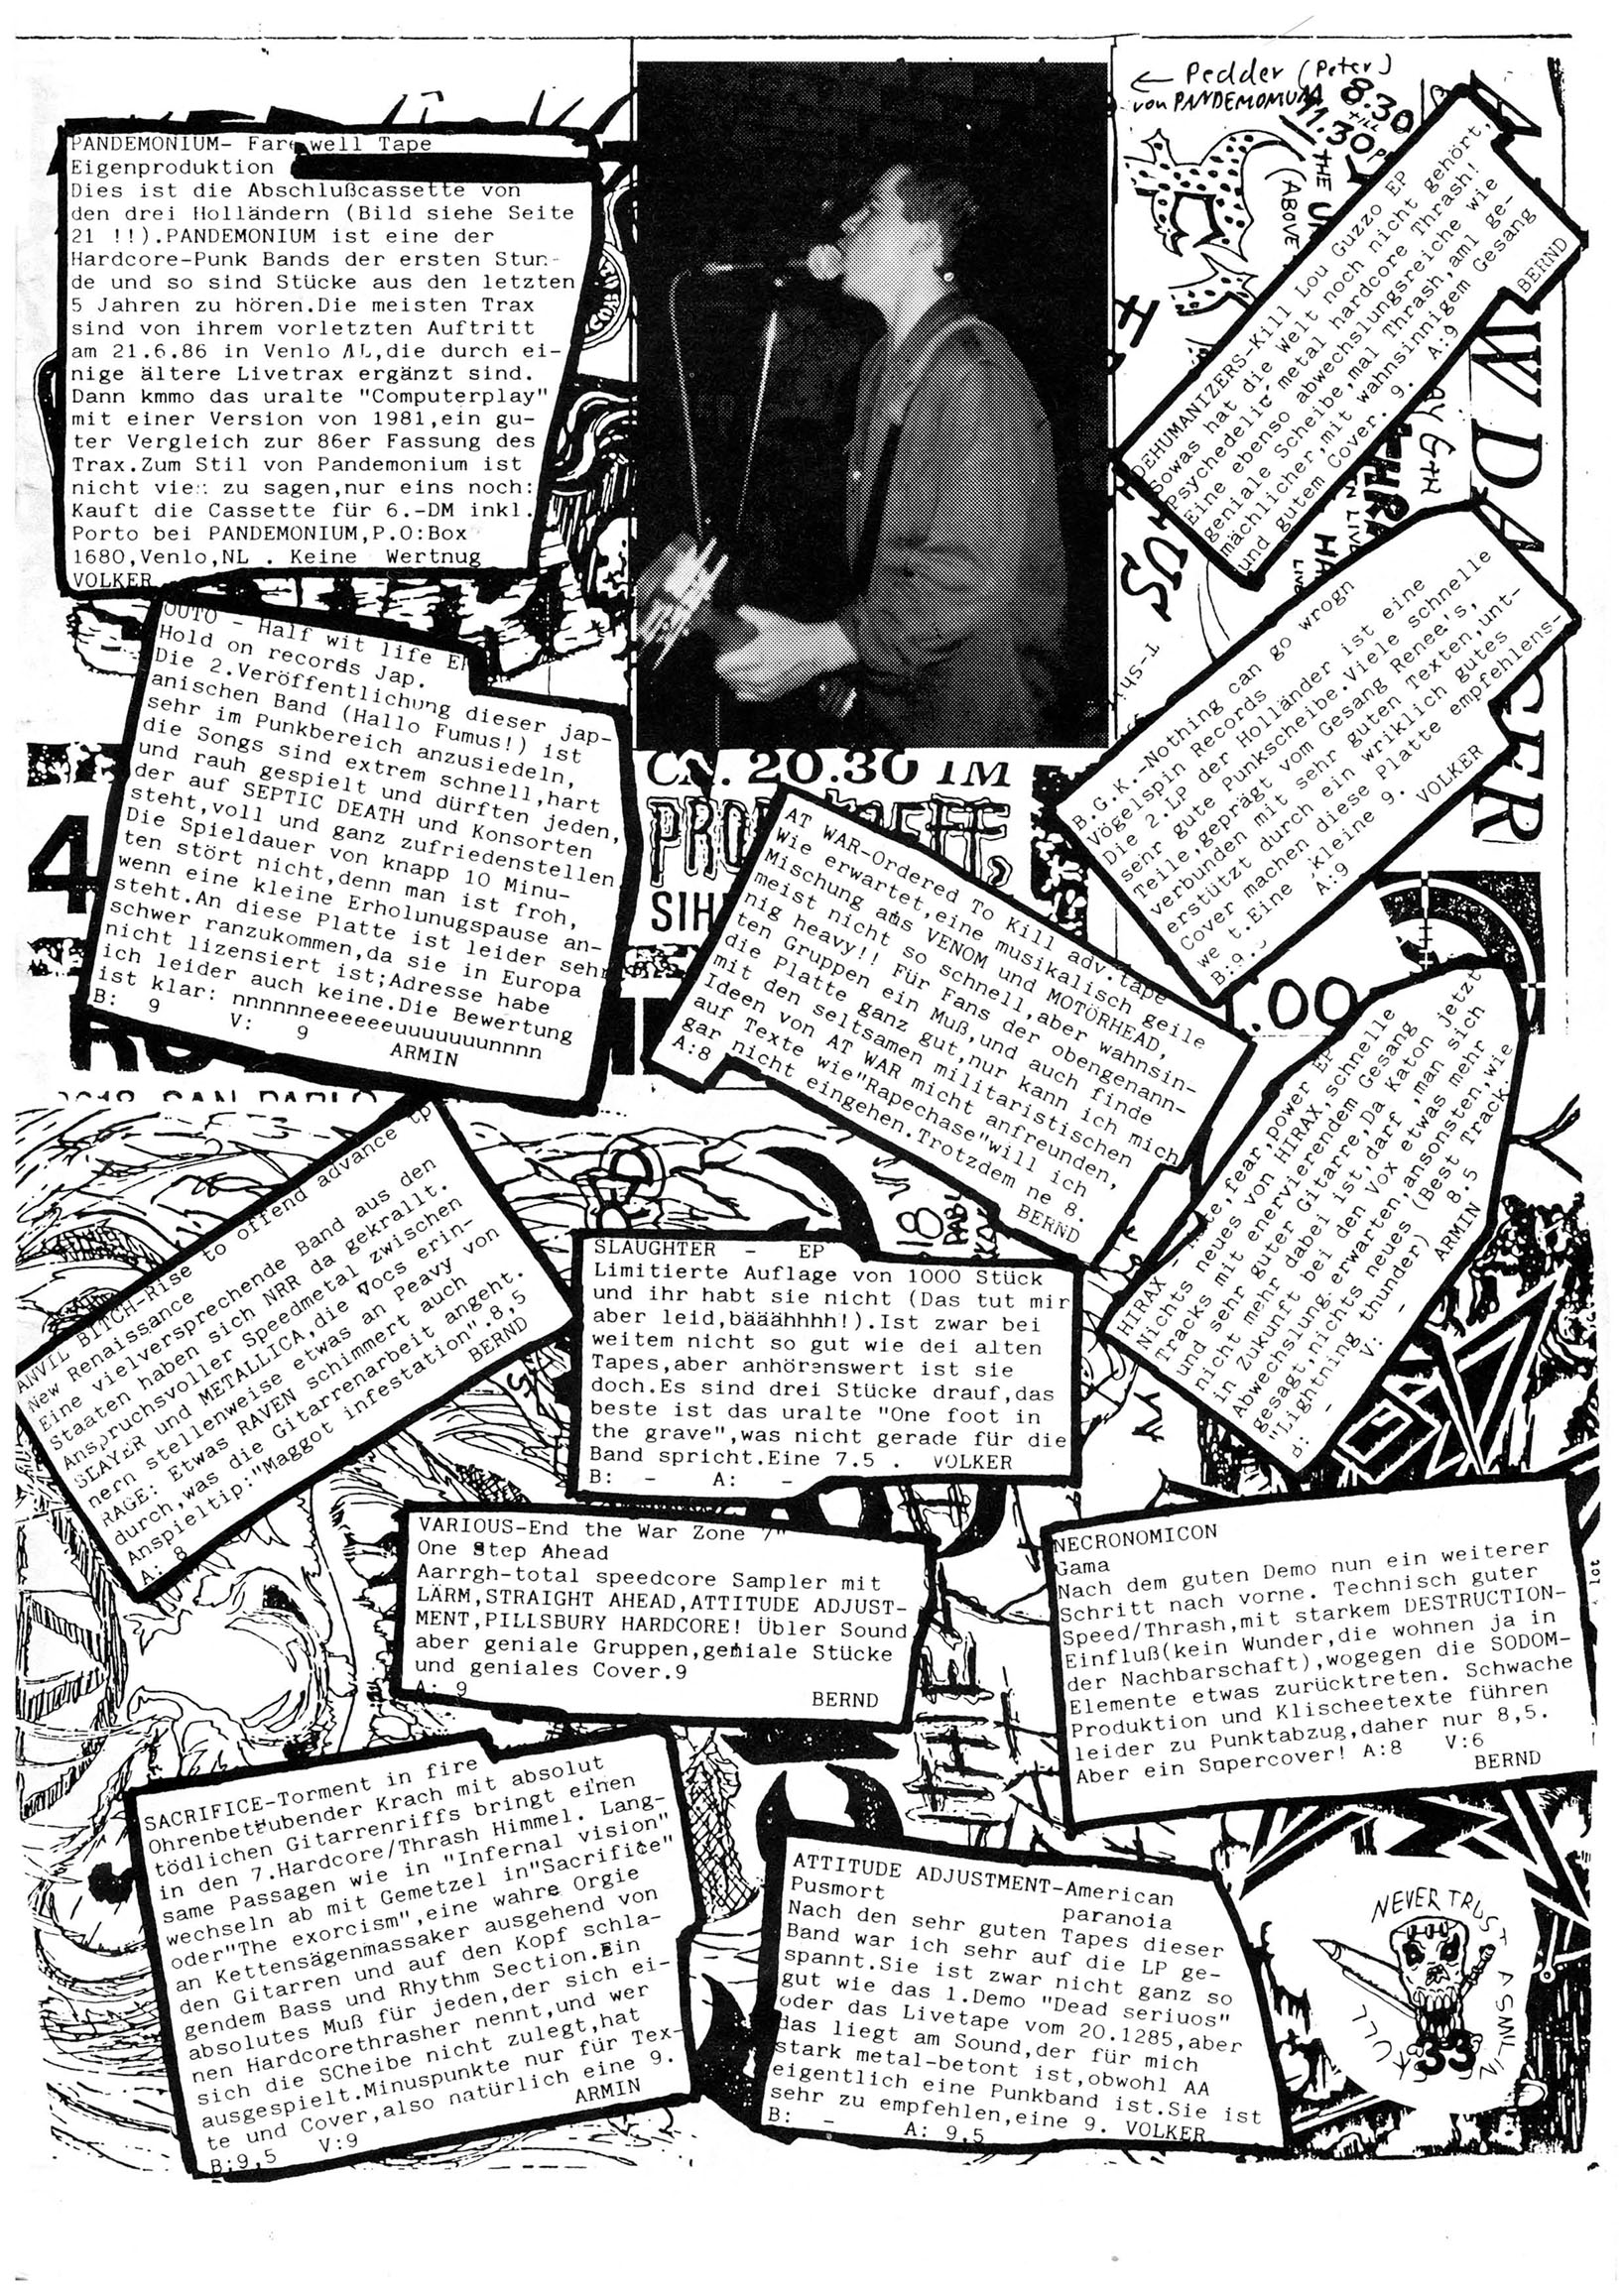 ← Pedder (Peter)
von PANDEMOMUM
8.30
TILL
11.30
(ABOVE
PANDEMONIUM- Farewell Tape
Eigenproduktion
Dies ist die Abschlußcassette von
den drei Holländern (Bild siehe Seite
21 !!).PANDEMONIUM ist eine der
Hardcore-Punk Bands der ersten Stun-
de und so sind Stücke aus den letzten
5 Jahren zu hören.Die meisten Trax
sind von ihrem vorletzten Auftritt
am 21.6.86 in Venlo AL,die durch ei-
nige ältere Livetrax ergänzt sind.
Dann kmmo das uralte "Computerplay"
mit einer Version von 1981,ein gu-
ter Vergleich zur 86er Fassung des
Trax.Zum Stil von Pandemonium ist
nicht viel zu sagen,nur eins noch:
Kauft die Cassette für 6.-DM inkl.
Porto bei PANDEMONIUM,P.O:Box
1680,Venlo,NL . Keine Wertnug
VOLKER
DEHUMANIZERS-Kill Lou Guzzo EP
Sowas hat die Welt noch nicht gehört,
Psychedelic metal hardcore Thrash!
Eine ebenso abwechslungsreiche wie
geniale Scheibe,mal Thrash,aml ge-
mächlicher,mit wahnsinnigem Gesang
und gutem Cover. 9. A:9 BERND
OUTO - Half wit life EP
Hold on records Jap.
Die 2.Veröffentlichung dieser jap-
anischen Band (Hallo Fumus!) ist
sehr im Punkbereich anzusiedeln,
die Songs sind extrem schnell,hart
und rauh gespielt und dürften jeden,
der auf SEPTIC DEATH und Konsorten
steht,voll und ganz zufriedenstellen
Die Spieldauer von knapp 10 Minu-
ten stört nicht,denn man ist froh,
wenn eine kleine Erholunugspause an-
steht.An diese Platte ist leider sehr
schwer ranzukommen,da sie in Europa
nicht lizensiert ist;Adresse habe
ich leider auch keine.Die Bewertung
ist klar: nnnnnneeeeeeuuuuuuunnnn
B: 9 V: 9 ARMIN
B.G.K.-Nothing can go wrogn
Vögelspin Records
Die 2.LP der Holländer ist eine
sehr gute Punkscheibe.Viele schnelle
Teile,geprägt vom Gesang Renee's,
verbunden mit sehr guten Texten,unt-
erstützt durch ein wriklich gutes
Cover machen diese Platte empfehlens-
we t.Eine kleine 9. VOLKER
B:9. A:9
20.30 IM
AT WAR-Ordered To Kill adv.tape
Wie erwartet,eine musikalisch geile
Mischung aus VENOM und MOTÖRHEAD,
meist nicht so schnell,aber wahnsin-
nig heavy!! Für Fans der obengenann-
ten Gruppen ein Muß,und auch finde
die Platte ganz gut,nur kann ich mich
mit den seltsamen militaristischen
Ideen von AT WAR micht anfreunden,
auf Texte wie"Rapechase"will ich
gar nicht eingehen.Trotzdem ne 8.
A:8 BERND
HIRAX - Hate,fear,power EP
Nichts neues von HIRAX,schnelle
Tracks mit enervierendem Gesang
und sehr guter Gitarre,Da Katon jetzt
nicht mehr dabei ist,darf ,man sich
in Zukunft bei den Vox etwas mehr
Abwechslung erwarten,ansonsten,wie
gesagt,nichts neues (Best Track:
"Lightning thunder) 8.5
B: - V: - ARMIN
ANVIL BITCH-Rise to offend advance tp
New Renaissance
Eine vielversprechende Band aus den
Staaten haben sich NRR da gekrallt.
Anspruchsvoller Speedmetal zwischen
SLAYER und METALLICA,die Vocs erin-
nern stellenweise etwas an Peavy von
RAGE: Etwas RAVEN schimmert auch
durch,was die Gitarrenarbeit angeht.
Anspieltip:"Maggot infestation".8,5
A: 8 BERND
SLAUGHTER - EP
Limitierte Auflage von 1000 Stück
und ihr habt sie nicht (Das tut mir
aber leid,bääähhhh!).Ist zwar bei
weitem nicht so gut wie dei alten
Tapes,aber anhörenswert ist sie
doch.Es sind drei Stücke drauf,das
beste ist das uralte "One foot in
the grave",was nicht gerade für die
Band spricht.Eine 7.5 . VOLKER
B: - A: -
VARIOUS-End the War Zone 7"
One Step Ahead
Aarrgh-total speedcore Sampler mit
LÄRM,STRAIGHT AHEAD,ATTITUDE ADJUST-
MENT,PILLSBURY HARDCORE! Übler Sound
aber geniale Gruppen,geniale Stücke
und geniales Cover.9
A: 9 BERND
NECRONOMICON
Gama
Nach dem guten Demo nun ein weiterer
Schritt nach vorne. Technisch guter
Speed/Thrash,mit starkem DESTRUCTION-
Einfluß(kein Wunder,die wohnen ja in
der Nachbarschaft),wogegen die SODOM-
Elemente etwas zurücktreten. Schwache
Produktion und Klischeetexte führen
leider zu Punktabzug,daher nur 8,5.
Aber ein Supercover! A:8 V:6
BERND
SACRIFICE-Torment in fire
Ohrenbetäubender Krach mit absolut
tödlichen Gitarrenriffs bringt einen
in den 7.Hardcore/Thrash Himmel. Lang-
same Passagen wie in "Infernal vision"
wechseln ab mit Gemetzel in"Sacrifice"
oder"The exorcism",eine wahre Orgie
an Kettensägenmassaker ausgehend von
den Gitarren und auf den Kopf schla-
gendem Bass und Rhythm Section.Ein
absolutes Muß für jeden,der sich ei-
nen Hardcorethrasher nennt,und wer
sich die SCheibe nicht zulegt,hat
ausgespielt.Minuspunkte nur für Tex-
te und Cover,also natürlich eine 9.
B:9,5 V:9 ARMIN
ATTITUDE ADJUSTMENT-American
Pusmort paranoia
Nach den sehr guten Tapes dieser
Band war ich sehr auf die LP ge-
spannt.Sie ist zwar nicht ganz so
gut wie das 1.Demo "Dead seriuos"
oder das Livetape vom 20.1285,aber
das liegt am Sound,der für mich
stark metal-betont ist,obwohl AA
eigentlich eine Punkband ist.Sie ist
sehr zu empfehlen,eine 9. VOLKER
B: - A: 9,5
NEVER TRUST A SMILIN
SKULL
33